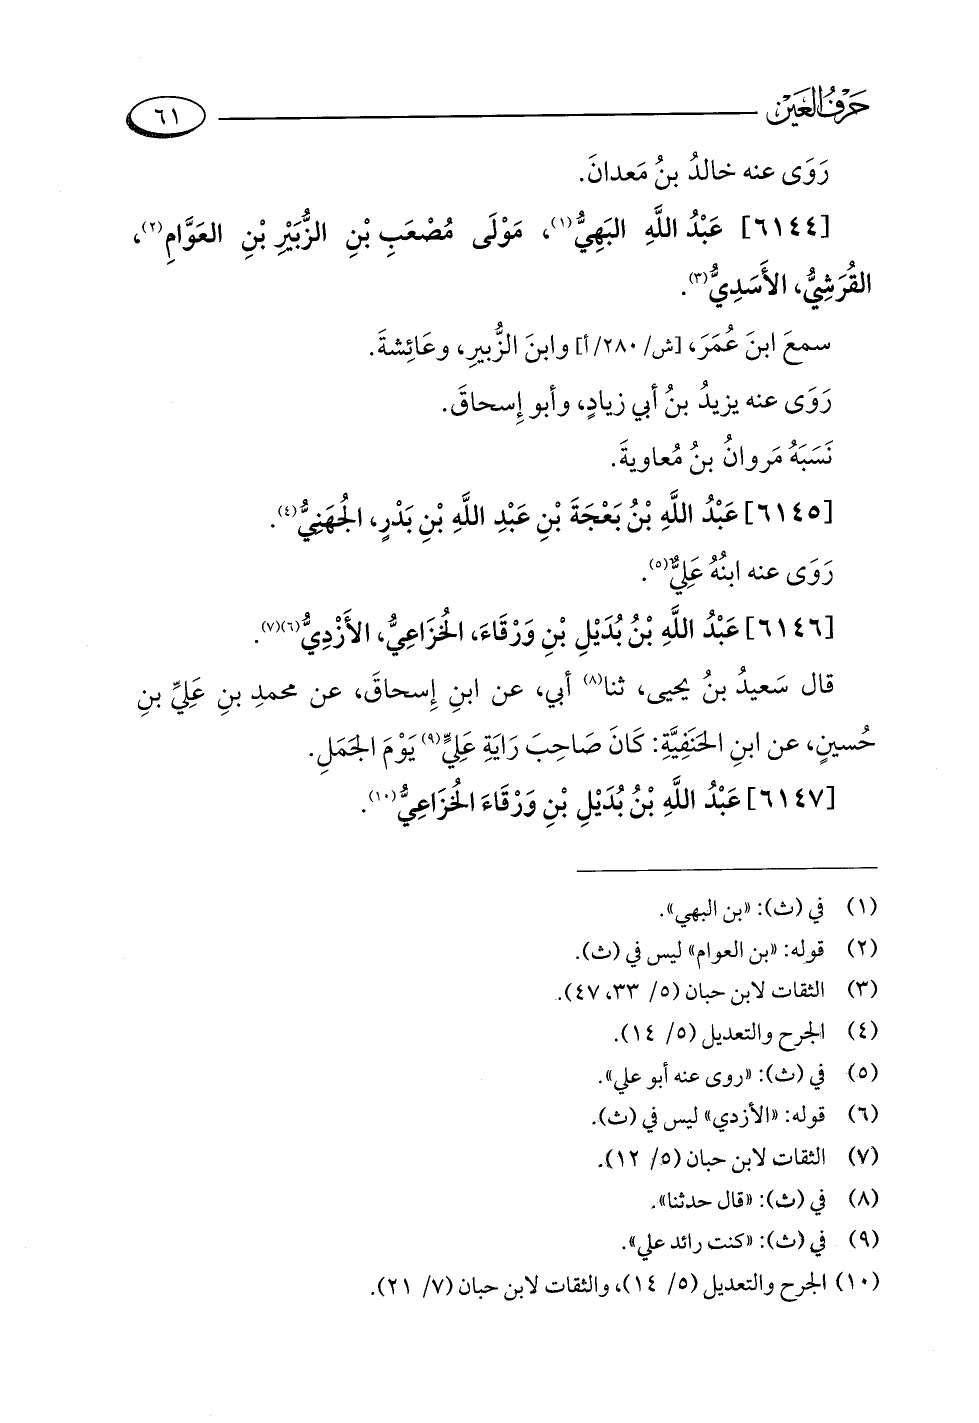 حَرْفُ العَيْنِ
٦١
رَوَى عنه خالدُ بنُ مَعدانَ.
[٦١٤٤] عَبْدُ اللَّهِ البَهِيُّ(١)، مَوْلَى مُصْعَبِ بْنِ الزُّبَيْرِ بْنِ العَوَّامِ(٢)،
القُرَشِيُّ، الأَسَدِيُّ(٣).
سمعَ ابنَ عُمَرَ، [ش/ ٢٨٠/ أ] وابنَ الزُّبيرِ، وعَائِشةَ.
رَوَى عنه يزيدُ بنُ أبي زيادٍ، وأبو إِسحاقَ.
نَسَبَهُ مَروانُ بنُ مُعاويةَ.
[٦١٤٥] عَبْدُ اللَّهِ بْنُ بَعْجَةَ بْنِ عَبْدِ اللَّهِ بْنِ بَدْرٍ، الجُهَنِيُّ(٤).
رَوَى عنه ابنُهُ عَلِيٌّ(٥).
[٦١٤٦] عَبْدُ اللَّهِ بْنُ بُدَيْلِ بْنِ وَرْقَاءَ، الخُزَاعِيُّ، الأَزْدِيُّ(٦)(٧).
قال سَعيدُ بنُ يحيى، ثنا(٨) أبي، عن ابنِ إِسحاقَ، عن محمدِ بنِ عَلِيِّ بنِ
حُسينٍ، عن ابنِ الحَنَفِيَّةِ: كَانَ صَاحِبَ رَايَةِ عَلِيٍّ(٩) يَوْمَ الجَمَلِ.
[٦١٤٧] عَبْدُ اللَّهِ بْنُ بُدَيْلِ بْنِ وَرْقَاءَ الخُزَاعِيُّ(١٠).
(١) في (ث): «بن البهي».
(٢) قوله: «بن العوام» ليس في (ث).
(٣) الثقات لابن حبان (٥/ ٣٣، ٤٧).
(٤) الجرح والتعديل (٥/ ١٤).
(٥) في (ث): «روى عنه أبو علي».
(٦) قوله: «الأزدي» ليس في (ث).
(٧) الثقات لابن حبان (٥/ ١٢).
(٨) في (ث): «قال حدثنا».
(٩) في (ث): «كنت رائد علي».
(١٠) الجرح والتعديل (٥/ ١٤)، والثقات لابن حبان (٧/ ٢١).